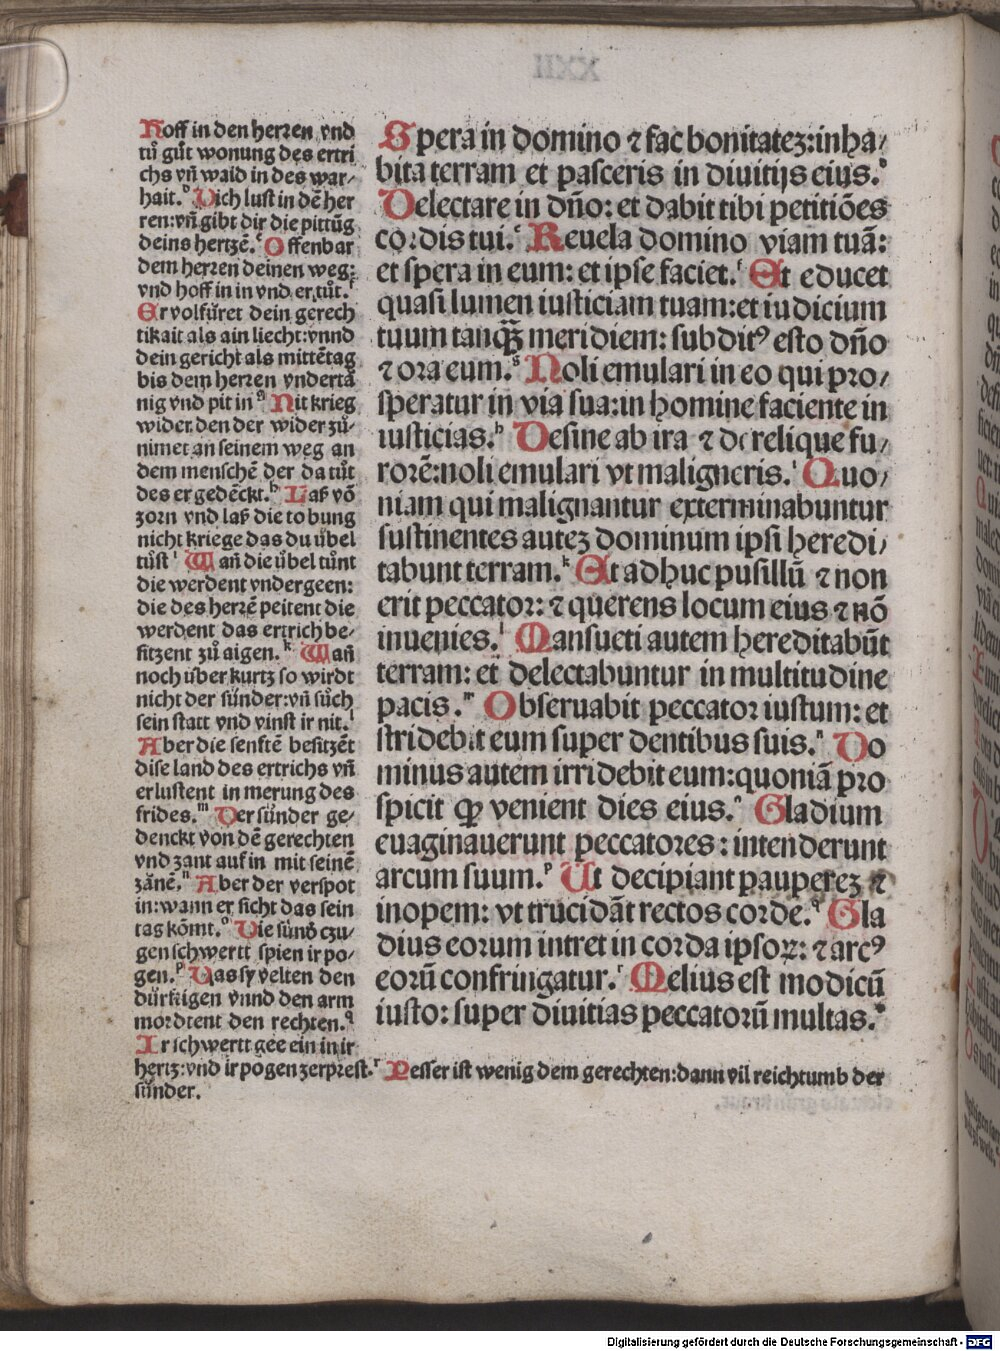 Hoff in den herren vnd
tů gůt wonung des ertri
chs vñ waid in des war/
hait. Dich lust in dē her
ren: vñ gibt dir die pittūg
deins hertzē. Offenbar
dem herren deinen weg:
vnd hoff in in vnd er tůt.
Er volfüret dein gerech
tikait als ain liecht: vnnd
dein gericht als mittētag
bis dem herren vndertā
nig vnd pit in Nit krieg
wider den der wider zů-
nimet an seinem weg an
dem menschē der da tůt
des er gedēckt. Laß vō
zorn vnd laß die tobung
nicht kriege das du übel
tůst Wañ die übel tůnt
die werdent vndergeen:
die des herrē peitent die
werdent das ertrich be-
sitzent zů aigen. Wañ
noch über kurtz so wirdt
nicht der sünder: vñ sůch
sein statt vnd vinst ir nit.
Aber die senftē besitzēt
dise land des ertrichs vñ
erlustent in merung des
frides. Der sünder ge-
denckt von dē gerechten
vnd zant auf in mit seinē
zānē. Aber der verspot
in: wann er sicht das sein
tag kōmt. Die sünd czu-
gen schwertt spien ir po-
gen. Das sy velten den
dürftigen vnnd den arm
mordtent den rechten.
Ir schwertt gee ein in ir
hertz: vnd ir pogen zerprest. Pesser ist wenig dem gerechten: dann vil reichtumb der
sünder.
Spera in domino ⁊ fac bonitatez: inha/
bita terram et pasceris in diuitijs eius.
Delectare in dño: et dabit tibi petitiōes
cordis tui. Reuela domino viam tuā:
et spera in eum: et ipse faciet. Et educet
quasi lumen iusticiam tuam: et iudicium
tuum tanqȝ meridiem: subditꝰ esto dño
⁊ ora eum. Noli emulari in eo qui pro/
speratur in via sua: in homine faciente in
iusticias. Desine ab ira ⁊ derelique fu/
rorē: noli emulari vt maligneris. Quo/
niam qui malignantur exterminabuntur
sustinentes autez dominum ipsi heredi/
tabunt terram. Et adhuc pusillū ⁊ non
erit peccator: ⁊ querens locum eius ⁊ nō
inuenies. Mansueti autem hereditabūt
terram: et delectabuntur in multitudine
pacis. Obseruabit peccator iustum: et
stridebit eum super dentibus suis. Do
minus autem irridebit eum: quoniā pro
spicit ꝙ venient dies eius. Gladium
euaginauerunt peccatores: intenderunt
arcum suum. Ut decipiant pauperez ⁊
inopem: vt trucidāt rectos corde. Gla
dius eorum intret in corda ipsoꝝ: ⁊ arcꝰ
eorū confringatur. Melius est modicū
iusto: super diuitias peccatorū multas.
Digitalisierung gefördert durch die Deutsche Forschungsgemeinschaft - DFG